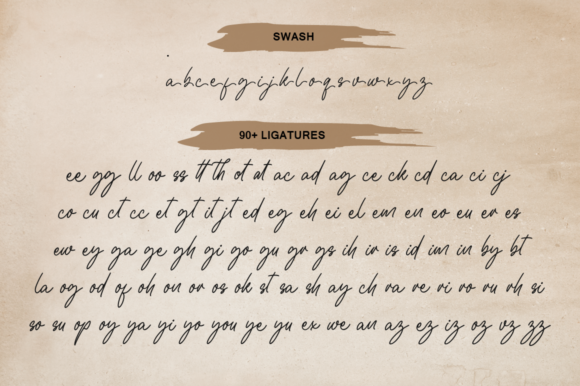 SWASH
a b c e f g i j k l o q s v w x y z
90+ LIGATURES
ee gg ll oo ss tt th ot at ac ad ag ce ck cd ca ci cj
co cu ct cc et gt it jt ed eg eh ei el em en eo eu er es
ew ey ga ge gh gi go gu gr gs ih ir is id im in by bt
la og od of oh on or os ok st sa sh ay ch ra re ri ro ru rh si
so su op oy ya yi yo you ye yu ex we an az ez iz oz vz zz